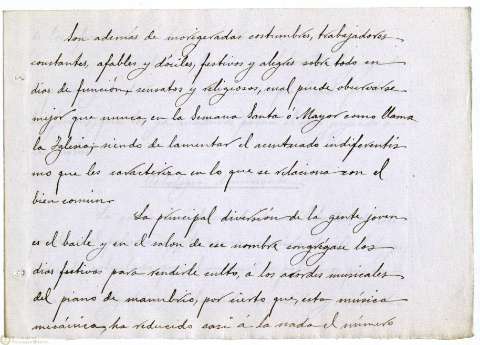 Son además de morigeradas costumbres, trabajadores
constantes, afables y dóciles, festivos y alegres sobre todo en
dias de función, sensatos y religiosos, cual puede observarse
mejor que nunca, en la Semana Santa ó Mayor como llama
la Iglesia; siendo de lamentar el acentuado indiferentis
mo que les caracteriza en lo que se relaciona con el
bien comun.
La principal diversión de la gente joven
es el baile y en el salon de ese nombre congrégase los
dias festivos para rendirle culto, á los acordes musicales
del piano de manubrio, por cierto que, esta música
mecánica, ha reducido casi á la nada el número